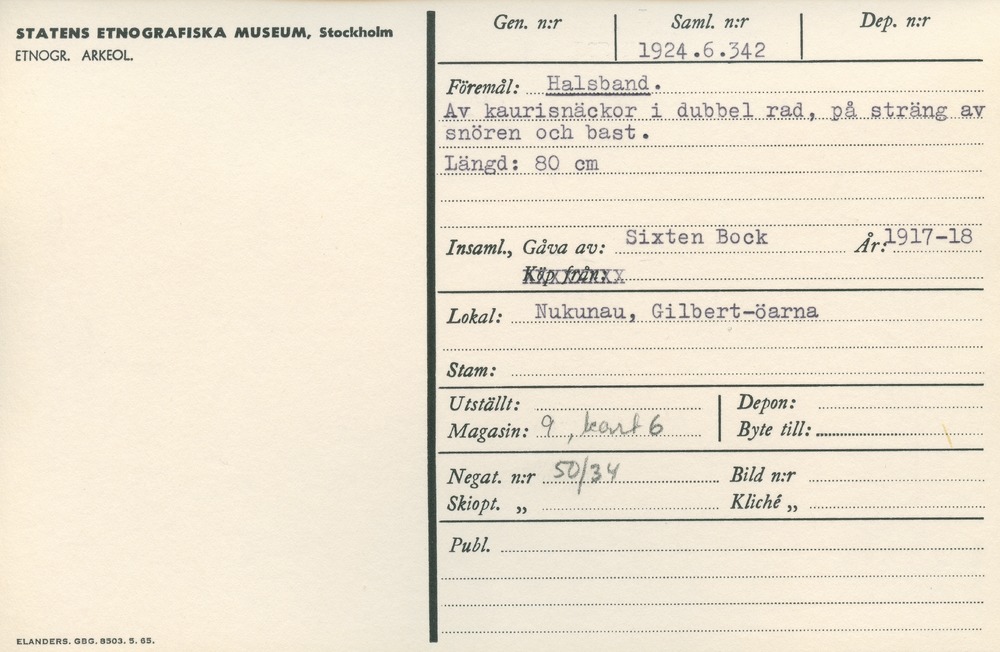 STATENS ETNOGRAFISKA MUSEUM, Stockholm
ETNOGR. ARKEOL.
Gen. n:r
Saml. n:r
Dep. n:r
1924.6.342
Föremål: Halsband.
Av kaurisnäckor i dubbel rad, på sträng av
snören och bast.
Längd: 80 cm
Insaml., Gåva av: Sixten Bock År: 1917-18
Köp från:
Lokal: Nukunau, Gilbert-öarna
Stam:
Utställt:
Depon:
Magasin: 9, kart 6
Byte till:
Negat. n:r 50/34
Bild n:r
Skiopt. „
Kliché „
Publ.
ELANDERS. GBG. 8503. 5. 65.